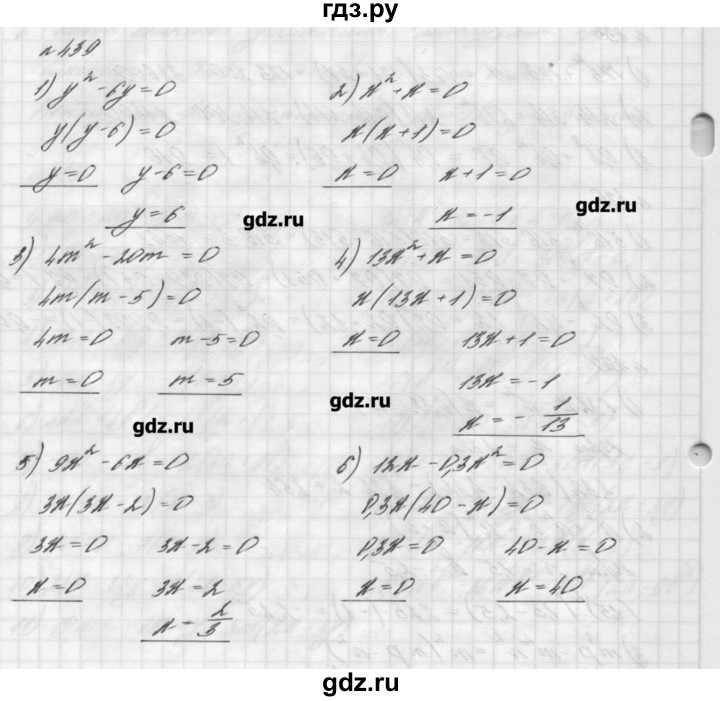 гдз.ру
№ 439
1) y² - 6y = 0
y(y - 6) = 0
y = 0 y - 6 = 0
y = 6
2) x² + x = 0
x(x + 1) = 0
x = 0 x + 1 = 0
x = -1
gdz.ru
gdz.ru
3) 4m² - 20m = 0
4m(m - 5) = 0
4m = 0 m - 5 = 0
m = 0 m = 5
4) 13x² + x = 0
x(13x + 1) = 0
x = 0 13x + 1 = 0
13x = -1
x = - 1/13
gdz.ru
gdz.ru
5) 9x² - 6x = 0
3x(3x - 2) = 0
3x = 0 3x - 2 = 0
x = 0 3x = 2
x = 2/3
6) 12x - 0,3x² = 0
0,3x(40 - x) = 0
0,3x = 0 40 - x = 0
x = 0 x = 40
gdz.ru